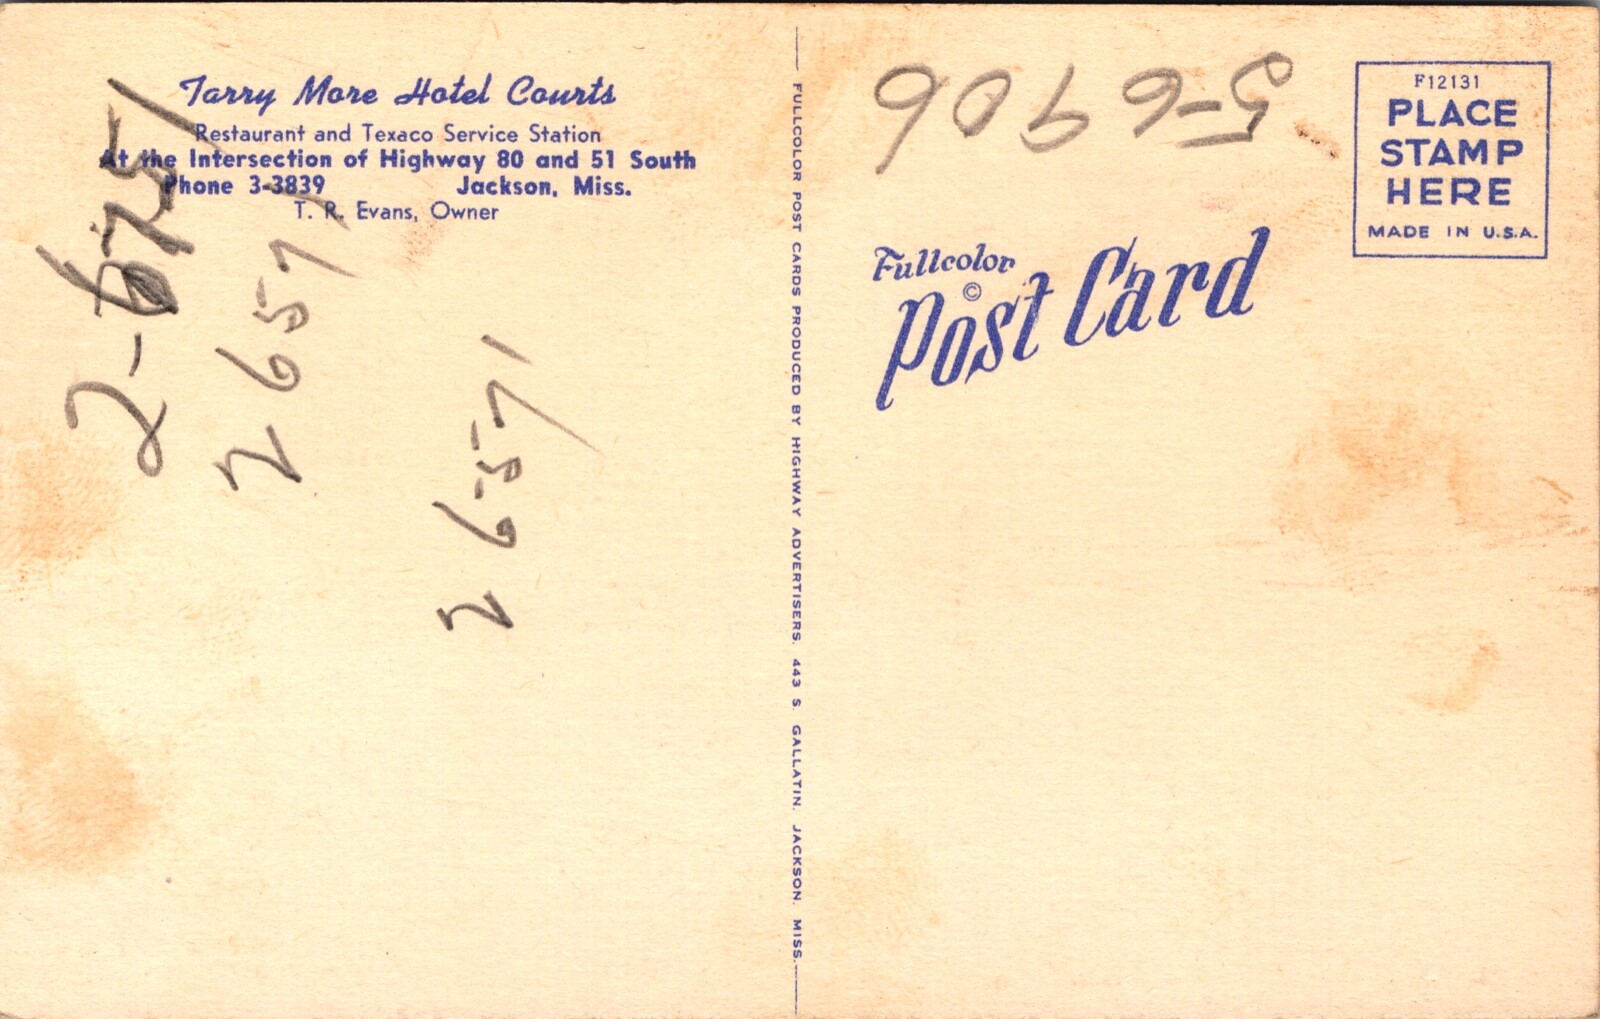 Tarry More Hotel Courts
Restaurant and Texaco Service Station
At the Intersection of Highway 80 and 51 South
Phone 3-3839 Jackson, Miss.
T. R. Evans, Owner
2 6571
2 6571
FULLCOLOR POST CARDS PRODUCED BY HIGHWAY ADVERTISERS. 443 S. GALLATIN. JACKSON. MISS.
5-6906
F12131
PLACE
STAMP
HERE
MADE IN U.S.A.
Fullcolor
©
Post Card